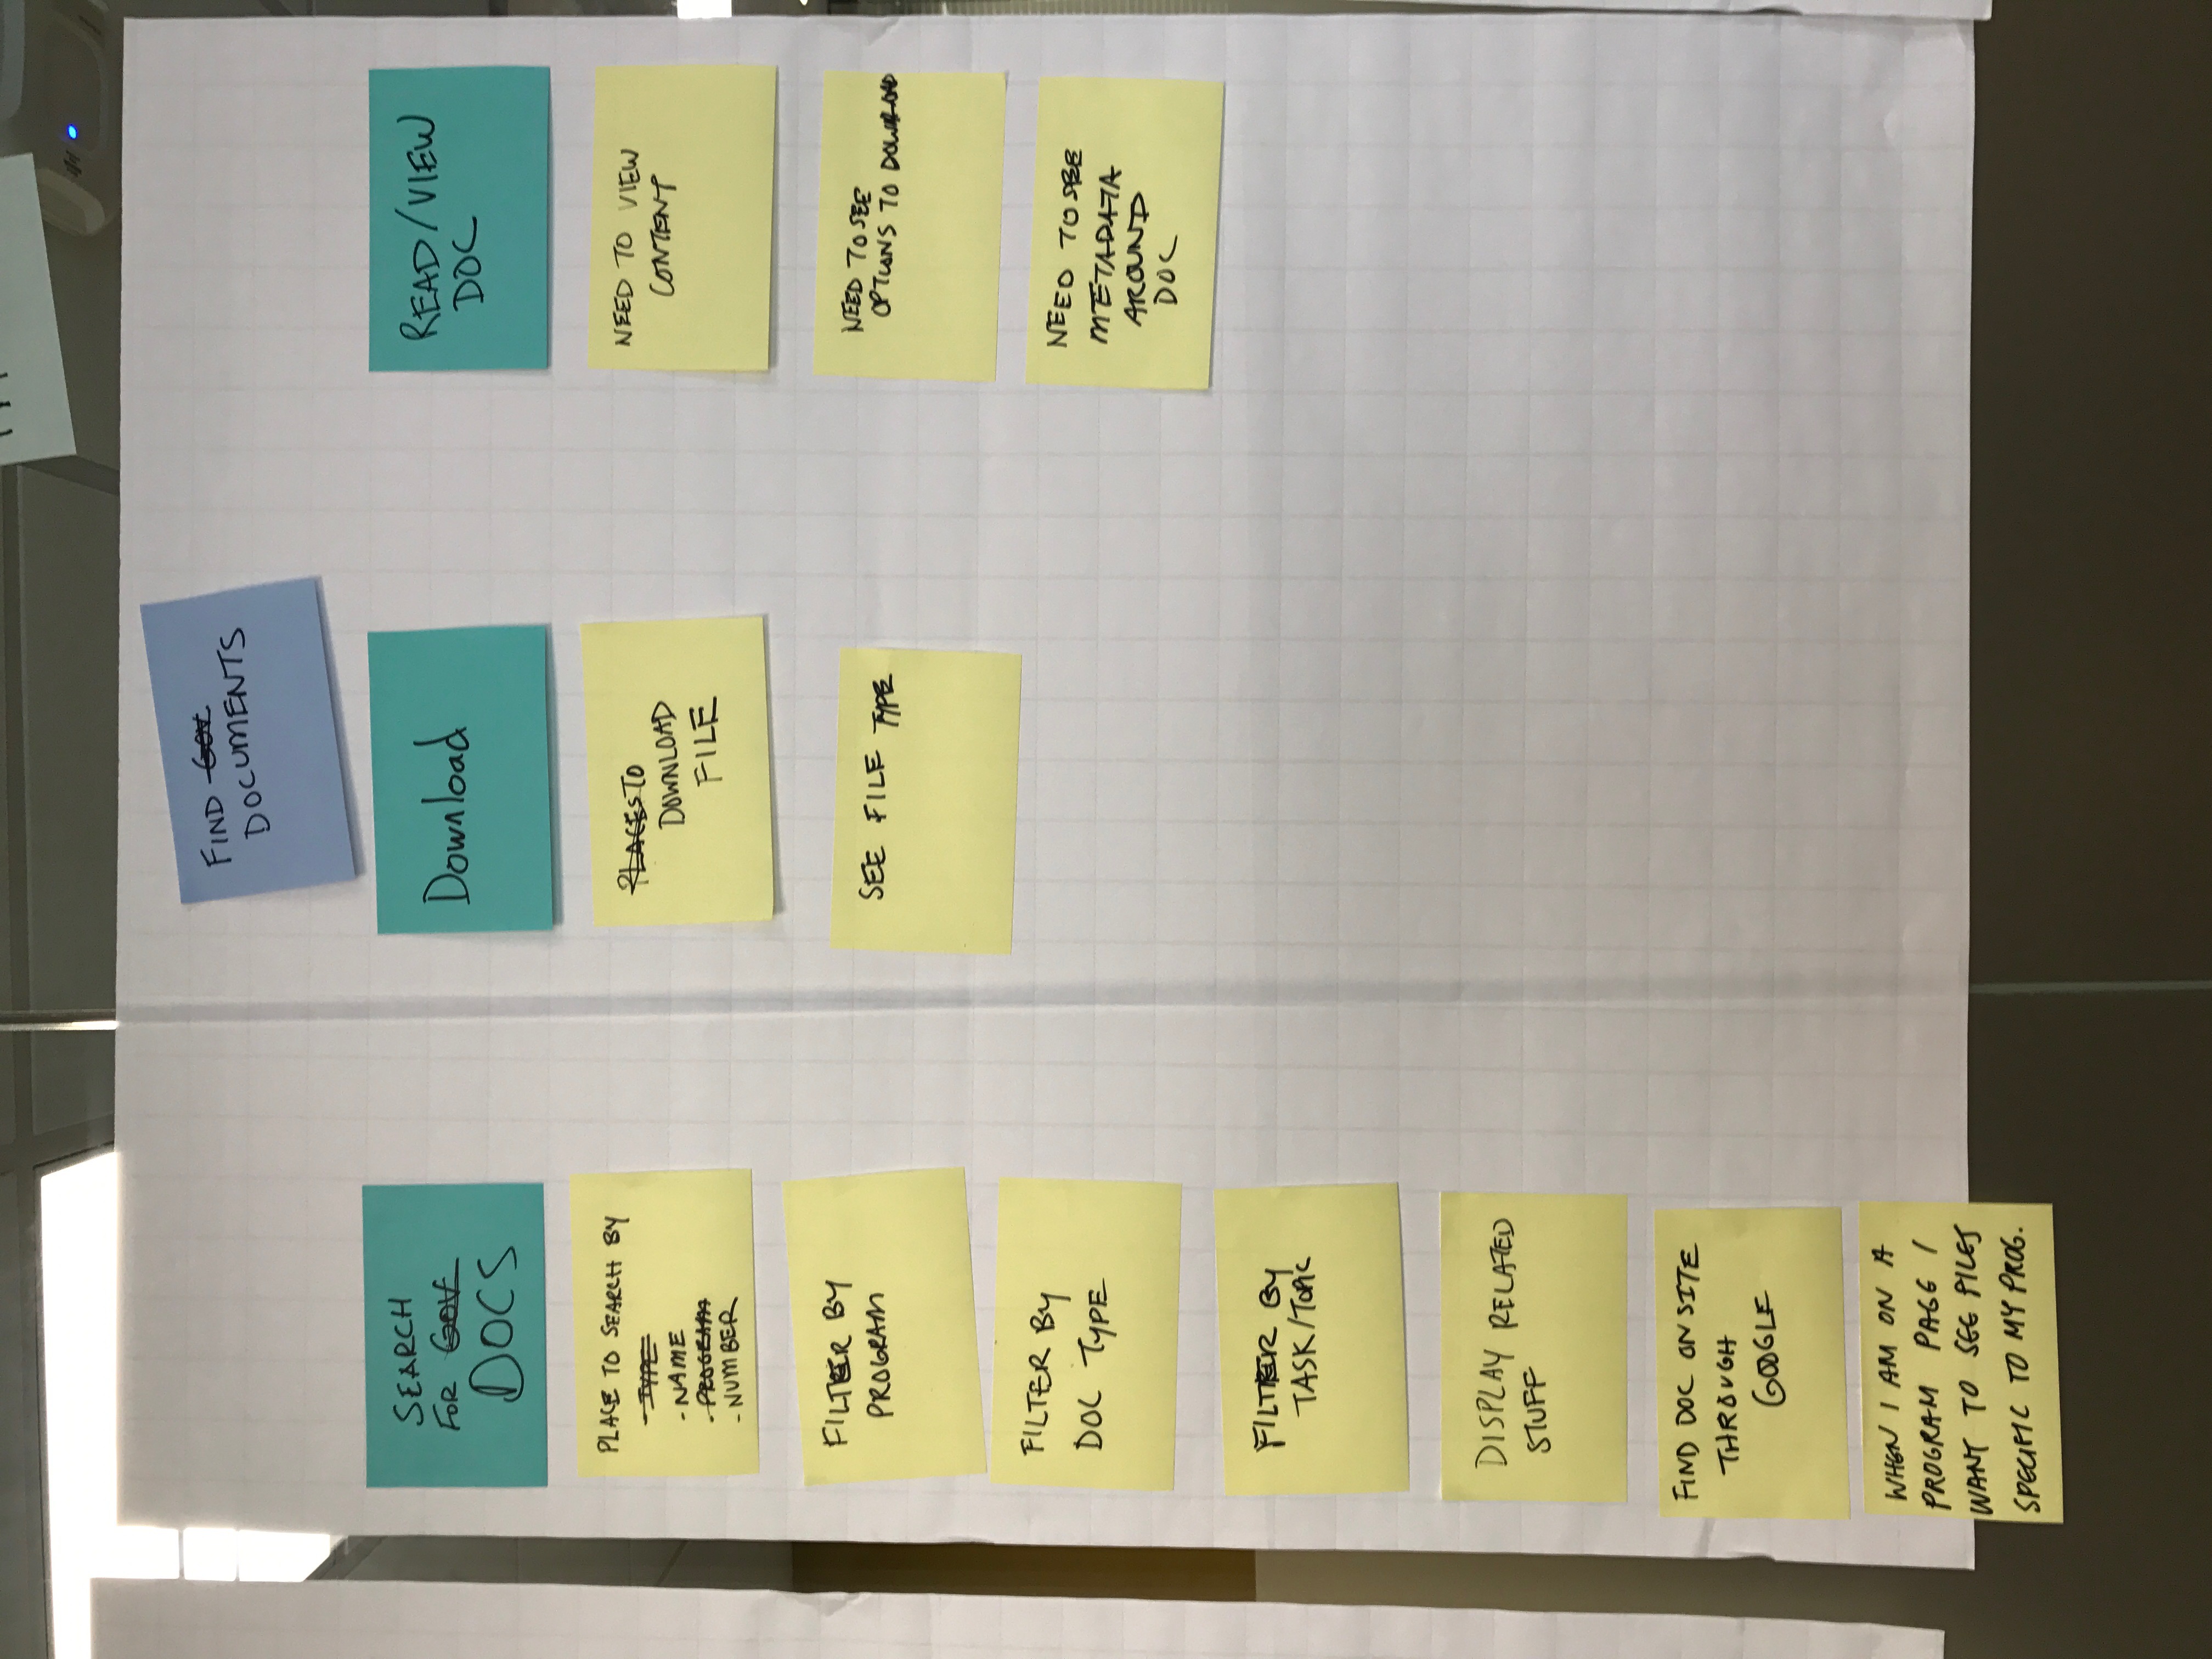 FIND GOV
DOCUMENTS
SEARCH
FOR GOV
DOCS
PLACE TO SEARCH BY
- TYPE
- NAME
- PROGRAM
- NUMBER
FILTER BY
PROGRAM
FILTER BY
DOC TYPE
FILTER BY
TASK/TOPIC
DISPLAY RELATED
STUFF
FIND DOC ON SITE
THROUGH
GOOGLE
WHEN I AM ON A
PROGRAM PAGE I
WANT TO SEE FILES
SPECIFIC TO MY PROG.
Download
PLACES TO
DOWNLOAD
FILE
SEE FILE TYPE
READ/VIEW
DOC
NEED TO VIEW
CONTENT
NEED TO SEE
OPTIONS TO DOWNLOAD
NEED TO SEE
METADATA
AROUND
DOC